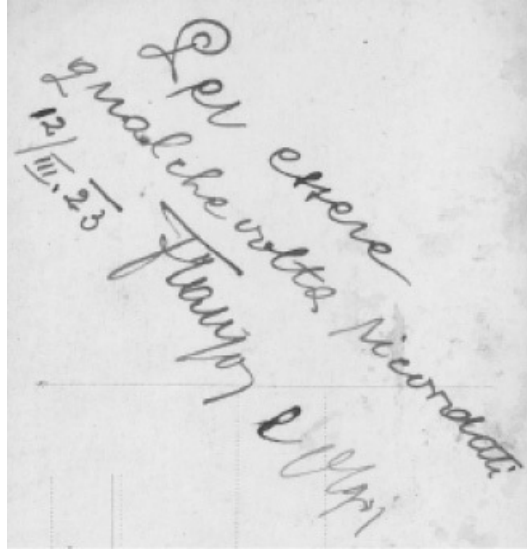 Per essere
qualche volta ricordati
12/III.23
e